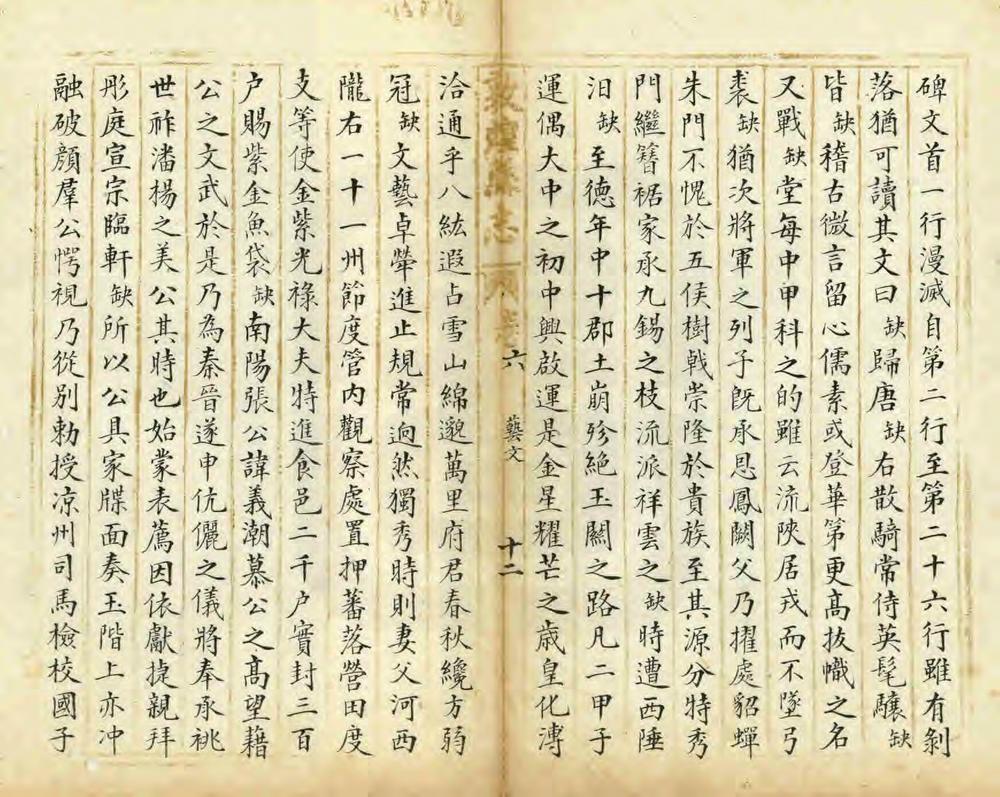 碑文首一行漫滅自第二行至第二十六行雖有剝
落猶可讀其文曰缺歸唐缺右散騎常侍英髦驤缺
皆缺稽古微言留心儒素或登華第更高拔幟之名
又戰缺堂每中甲科之的雖云流陝居戎而不墜弓
裘缺猶次將軍之列子既承恩鳳闕父乃擢處貂蟬
朱門不愧於五侯樹戟崇隆於貴族至其源分特秀
門繼簪裾家承九錫之枝流派祥雲之缺時遭西陲
汩缺至德年中十郡土崩殄絕玉關之路凡二甲子
運偶大中之初中興啟運是金星耀芒之歲皇化溥
敦煌縣志
六
藝文
十二
洽通乎八紘遐占雪山綿邈萬里府君春秋纔方弱
冠缺文藝卓犖進止規常逈然獨秀時則妻父河西
隴右一十一州節度管內觀察處置押蕃落營田度
支等使金紫光祿大夫特進食邑二千户實封三百
户賜紫金魚袋缺南陽張公諱義潮慕公之高望藉
公之文武於是乃為秦晉遂申伉儷之儀將奉承祧
世祚潘楊之美公其時也始蒙表薦因依獻捷親拜
彤庭宣宗臨軒缺所以公具家牒面奏玉階上亦冲
融破顏羣公愕視乃從別勅授涼州司馬檢校國子